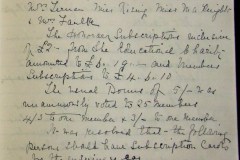 Mrs Leeman Miss Rising Miss M. G. Wright
& Mrs Faulke
The Honorary Subscriptions inclusive
of £7- from the Educational Charity
amounted to £6.19.- and members
Subscriptions to £4.6.10
The usual Bonus of 5/- was
unanimously voted to 25 members
4/3 to one member & 3/- to one member
It was resolved that the following
persons should have Subscription Cards
for the ensuing year